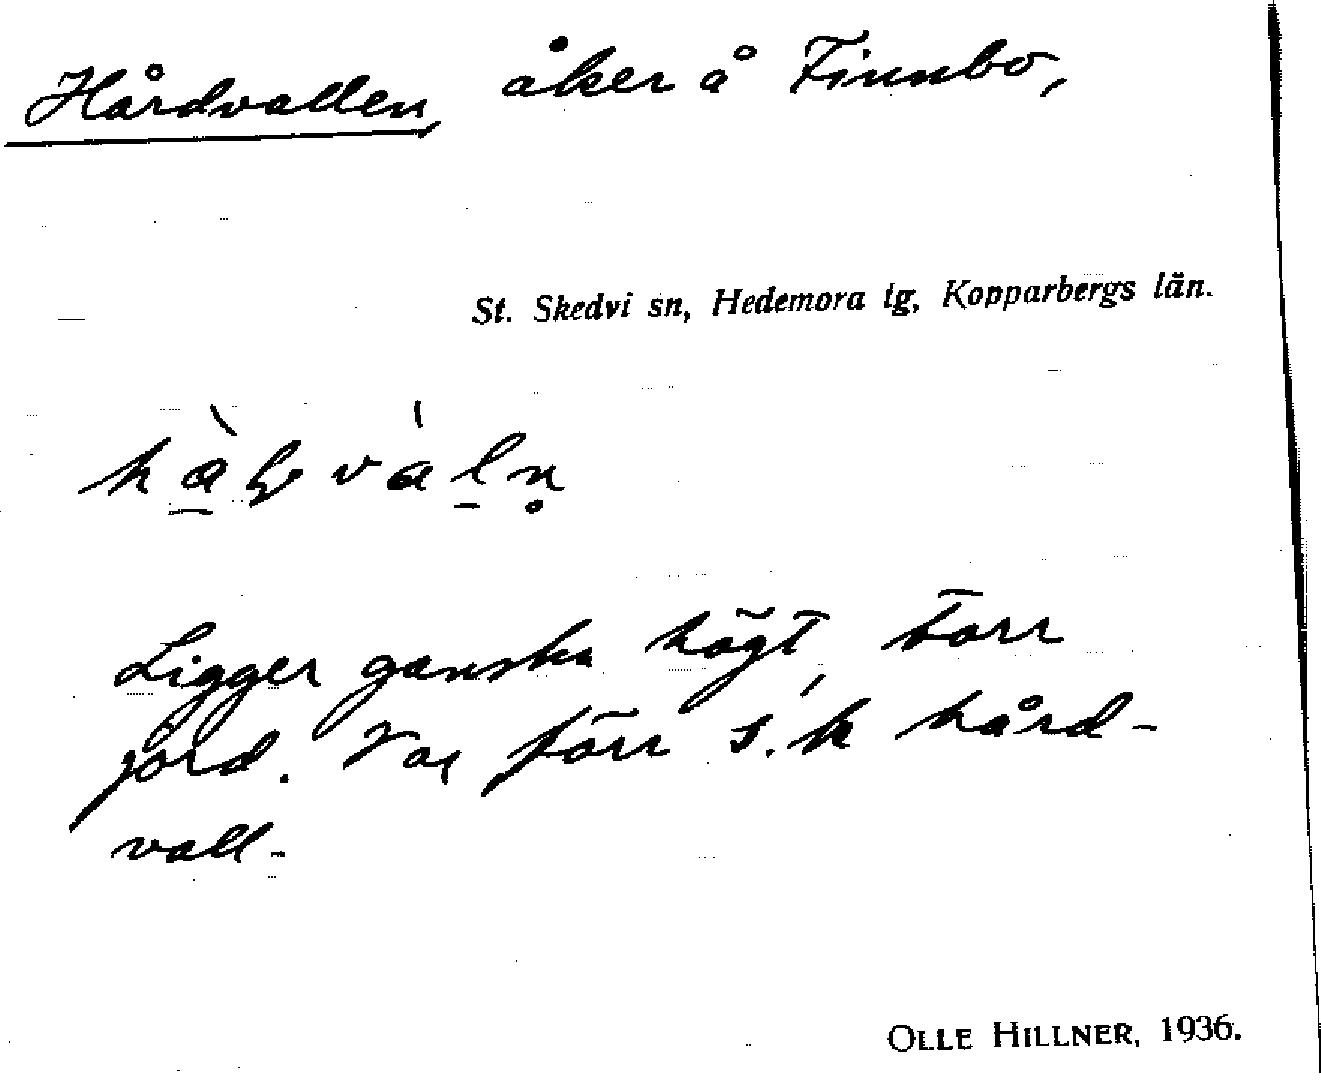 Hårdvallen, åker å Finnbo,
St. Skedvi sn, Hedemora tg, Kopparbergs län.
Ligger ganska högt, torr
jord. Var förr s.k hård-
vall.
OLLE HILLNER, 1936.